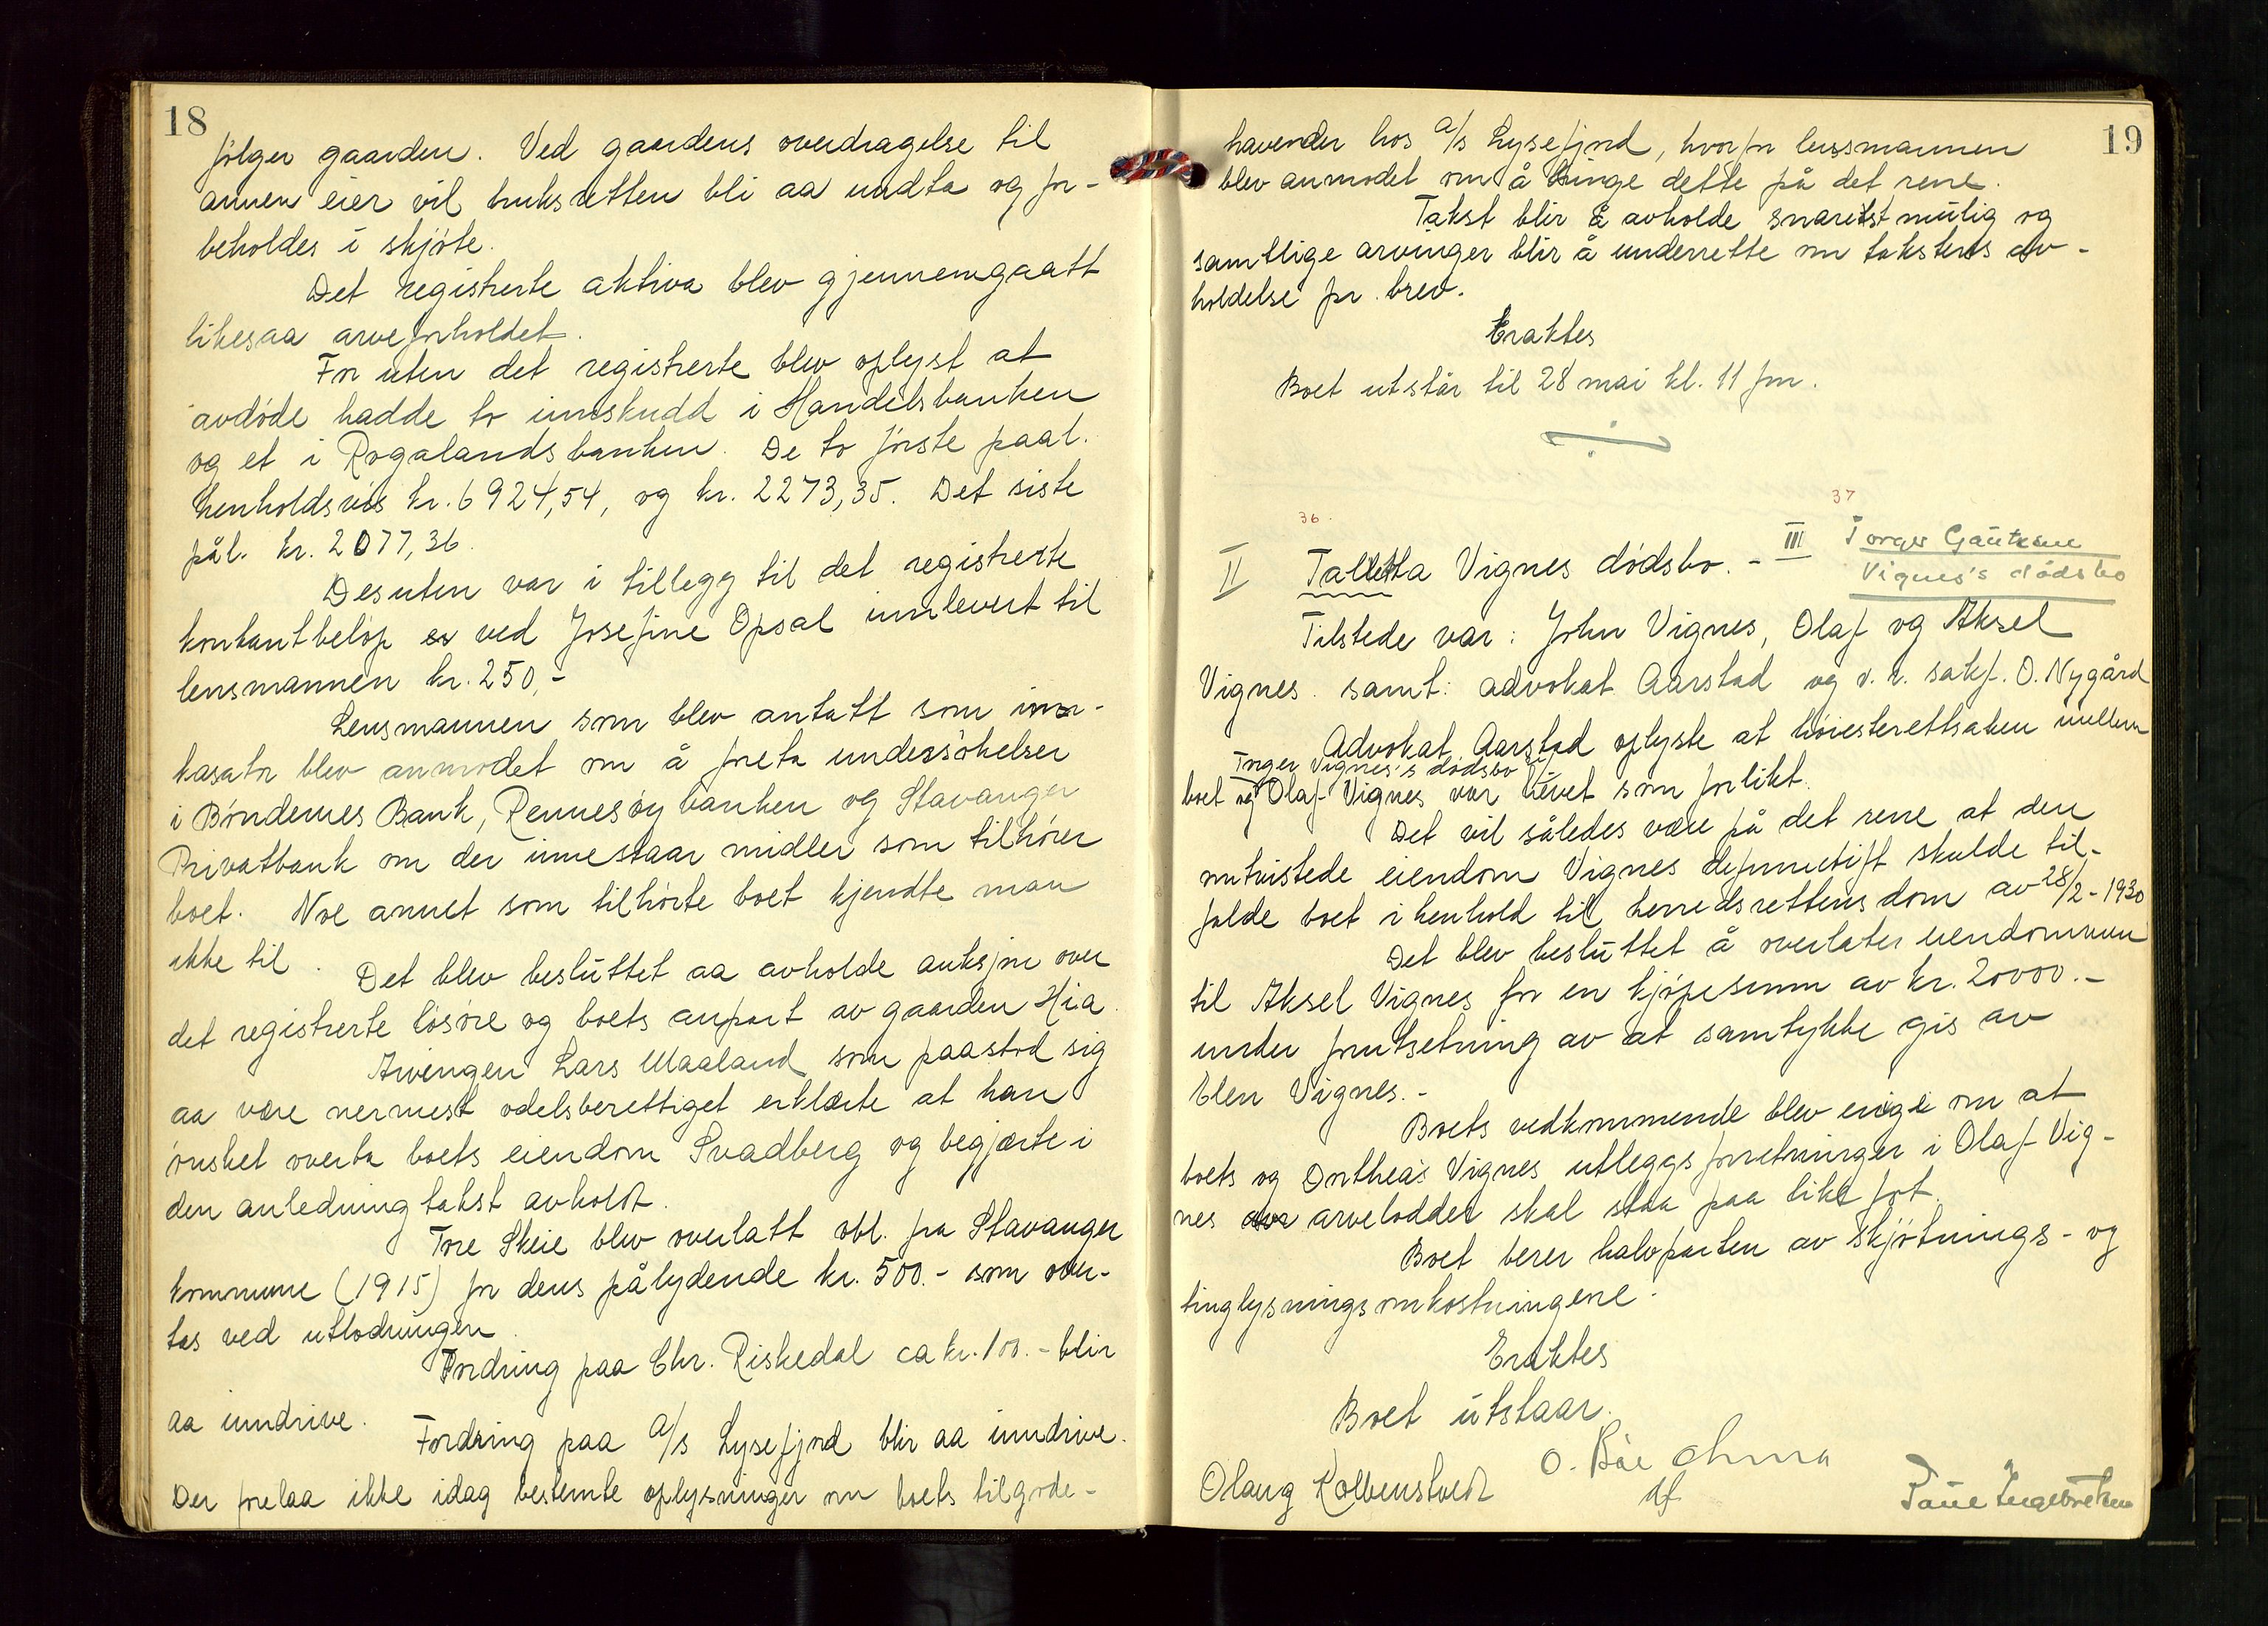 18
følger gaarden. Ved gaardens overdragelse til
annen eier vil bruksretten bli aa undta og for-
beholdes i skjøte.
Det registrerte aktiva blev gjennemgaatt
likesaa arveforholdet.
For uten det registrerte blev oplyst at
avdøde hadde to innskudd i Handelsbanken
og et i Rogalandsbanken. De to første paal.
henholdsvis kr. 6924,54, og kr. 2273,35. Det siste
pål. kr. 2077,36.
Desuten var i tillegg til det registrerte
kontantbeløp er ved Josefine Opsal innlevert til
lensmannen kr. 250,-
Lensmannen som blev antatt som inn-
kasator blev anmodet om å foreta undersøkelser
i Bøndernes Bank, Rennesøy banken og Stavanger
Privatbank om der innestaar midler som tilhører
boet. Noe annet som tilhørte boet kjendte man
ikke til.
Det blev besluttet aa avholde auksjon over
det registrerte løsøre og boets anpart av gaarden Hia.
Arvingen Lars Maaland som paastod sig
aa være nermest odelsberettiget erklærte at han
ønsket overta boets eiendom Svadberg og begjærte i
den anledning takst avholdt.
Tore Skeie blev overlatt obl. fra Stavanger
kommune (1915) for dens pålydende kr. 500.- som over-
tas ved utlodningen.
Fordring paa Chr. Riskedal ca kr. 100.- blir
aa inndrive.
Fordring paa A/s Lysefjord blir aa inndrive.
Der forelaa ikke idag bestemte oplysninger om boets tilgode-
19
havender hos A/s Lysefjord, hvorfor lensmannen
blev anmodet om å bringe dette på det rene.
Takst blir å avholde snarest mulig og
samtlige arvinger blir å underrette om takstens av-
holdelse pr. brev.
Eraktes
Boet utstår til 28 mai kl. 11 fm.
36. 37
II Talletta Vignes dødsbo. - III Torger Gautesene
Vignes's dødsbo
Tilstede var: John Vignes, Olaf og Aksel
Vignes. samt: advokat Aarstad og o.r. sakf. O. Nygård
Advokat Aarstad oplyste at høiesterettsaken mellem
Torger Vignes's dødsbo
boet og Olaf Vignes var hevet som forlikt.
Det vil således være på det rene at den
omtvistede eiendom Vignes definitift skulde til-
falde boet i henhold til herredsrettens dom av 28/2-1930
Det blev besluttet å overlates eiendommen
til Aksel Vignes for en kjøpesum av kr. 20000.-
under forutsetning av at samtykke gis av
Elen Vignes.-
Boets vedkommende blev enige om at
boets og Ortheas Vignes utleggsforretninger i Olaf Vig-
nes arvelodder skal staa paa like fot.
Boet berer halvparten av skjøtnings- og
tinglysningsomkostningene.
Eraktes
Boet utstaar.
Olaug Kolbenstvedt O. Bøe
Tine Ingebretsen